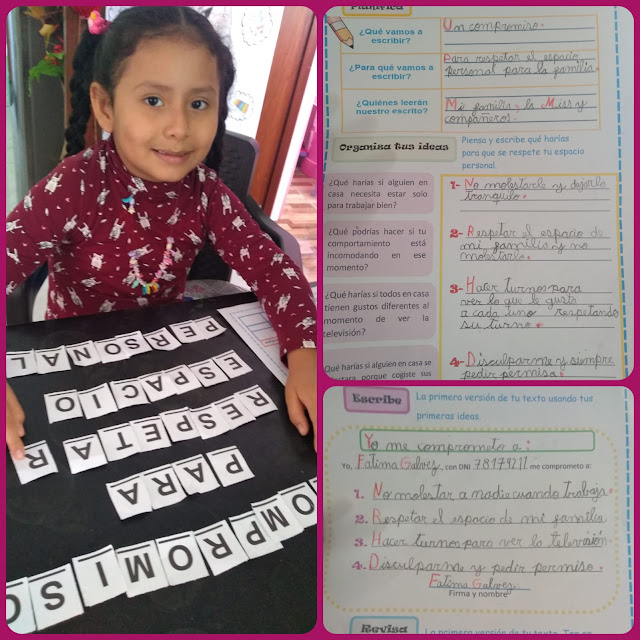 COMPROMISO
PARA
RESPETAR
ESPACIO
PERSONAL
Planifica
¿Qué vamos a
escribir?
Un compromiso.
¿Para qué vamos a
escribir?
Para respetar el espacio
personal para la familia.
¿Quiénes leerán
nuestro escrito?
Mi familia, la Miss y
compañeros.
Organiza tus ideas
Piensa y escribe qué harías
para que se respete tu espacio
personal.
¿Qué harías si alguien en
casa necesita estar solo
para trabajar bien?
1- No molestarle y dejarlo
tranquilo.
¿Qué podrías hacer si tu
comportamiento está
incomodando en ese
momento?
2- Respetar el espacio de
mi familia y no
molestarlo.
¿Qué harías si todos en casa
tienen gustos diferentes al
momento de ver la
televisión?
3- Hacer turnos para
ver lo que le gusta
a cada uno respetando
su turno.
¿Qué harías si alguien en casa se
porque cogiste sus
4- Disculparme y siempre
pedir permiso.
Escribe
La primera versión de tu texto usando tus
primeras ideas.
Yo me comprometo a:
Yo, Fatima Galvez, con DNI me comprometo a:
1. No molestar a nadie cuando trabaja.
2. Respetar el espacio de mi familia
3. Hacer turnos para ver la televisión.
4. Disculparme y pedir permiso.
Fatima Galvez
Firma y nombre
Revisa
La primera versión de tu texto. Ten en